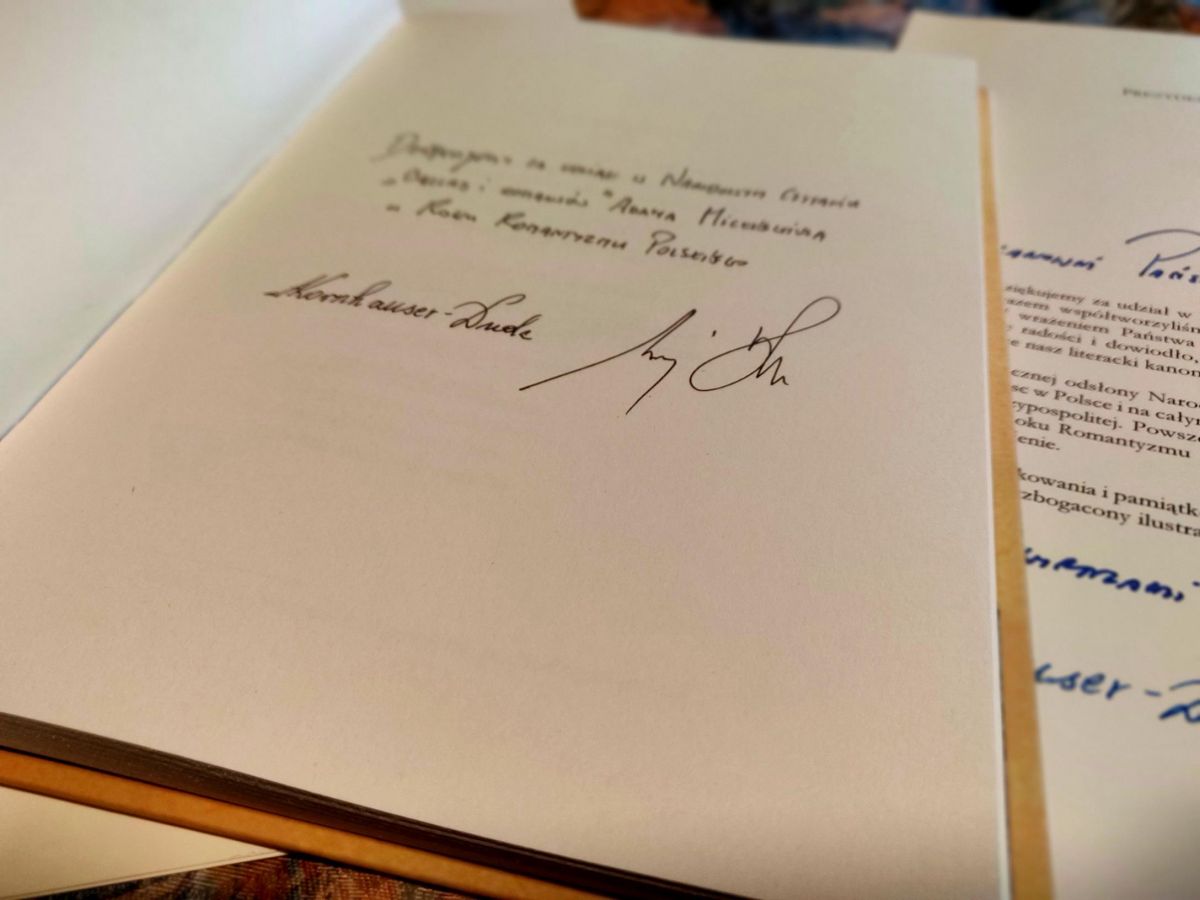 Dziękujemy za udział w Narodowym Czytaniu
„Ballad i romansów" Adama Mickiewicza
w Roku Romantyzmu Polskiego
AKornhauser-Duda
PREZYDE
zanowni Pańs
ziękujemy za udział w
azem współtworzyliśm
wrażeniem Państwa
radości i dowiodło,
e nasz literacki kanon
cznej odsłony Naro
w Polsce i na cały
zypospolitej. Powsze
oku Romantyzmu
ienie.
kowania i pamiątk
zbogacony ilustra
wyrazami
user-D